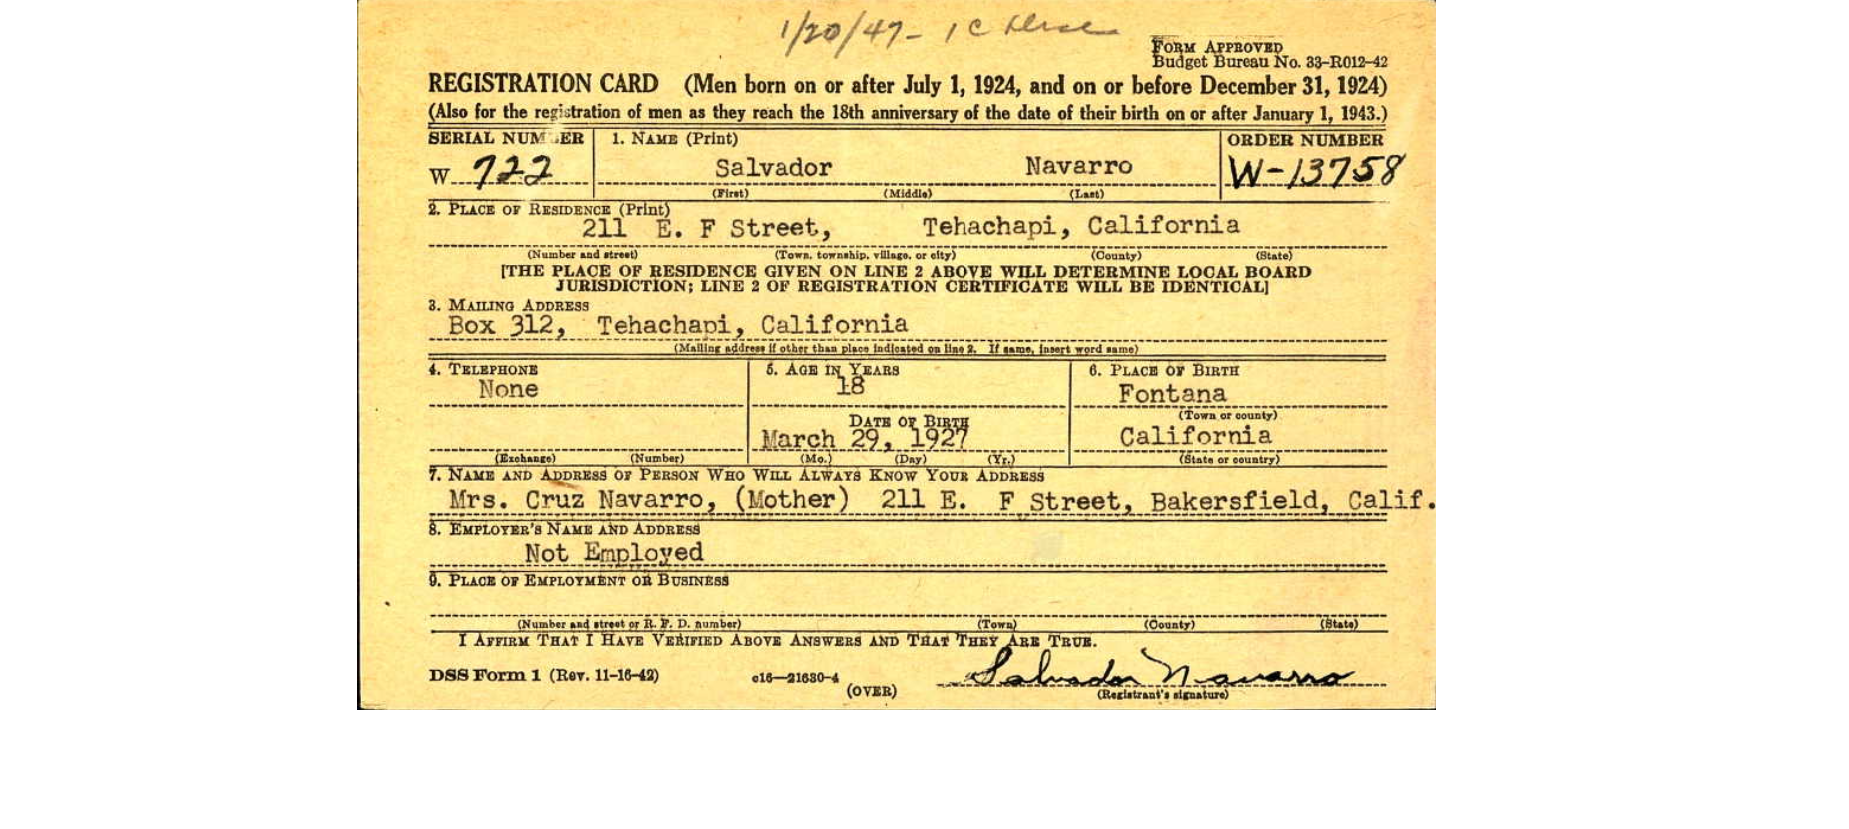 1/20/47- 1C Disc
FORM APPROVED
Budget Bureau No. 33-R012-42
REGISTRATION CARD (Men born on or after July 1, 1924, and on or before December 31, 1924)
(Also for the registration of men as they reach the 18th anniversary of the date of their birth on or after January 1, 1943.)
SERIAL NUMBER 1. NAME (Print) ORDER NUMBER
W 722 Salvador Navarro W-13758
(First) (Middle) (Last)
2. PLACE OF RESIDENCE (Print)
211 E. F Street, Tehachapi, California
(Number and street) (Town, township, village, or city) (County) (State)
[THE PLACE OF RESIDENCE GIVEN ON LINE 2 ABOVE WILL DETERMINE LOCAL BOARD
JURISDICTION; LINE 2 OF REGISTRATION CERTIFICATE WILL BE IDENTICAL]
3. MAILING ADDRESS
Box 312, Tehachapi, California
(Mailing address if other than place indicated on line 2. If same, insert word same)
4. TELEPHONE 5. AGE IN YEARS 6. PLACE OF BIRTH
None 18 Fontana
(Town or county)
DATE OF BIRTH
March 29, 1927 California
(Exchange) (Number) (Mo.) (Day) (Yr.) (State or country)
7. NAME AND ADDRESS OF PERSON WHO WILL ALWAYS KNOW YOUR ADDRESS
Mrs. Cruz Navarro, (Mother) 211 E. F Street, Bakersfield, Calif.
8. EMPLOYER'S NAME AND ADDRESS
Not Employed
9. PLACE OF EMPLOYMENT OR BUSINESS
(Number and street or R. F. D. number) (Town) (County) (State)
I AFFIRM THAT I HAVE VERIFIED ABOVE ANSWERS AND THAT THEY ARE TRUE.
Salvador Navarro
DSS Form 1 (Rev. 11-16-42) c16—21630-4 (OVER) (Registrant's signature)